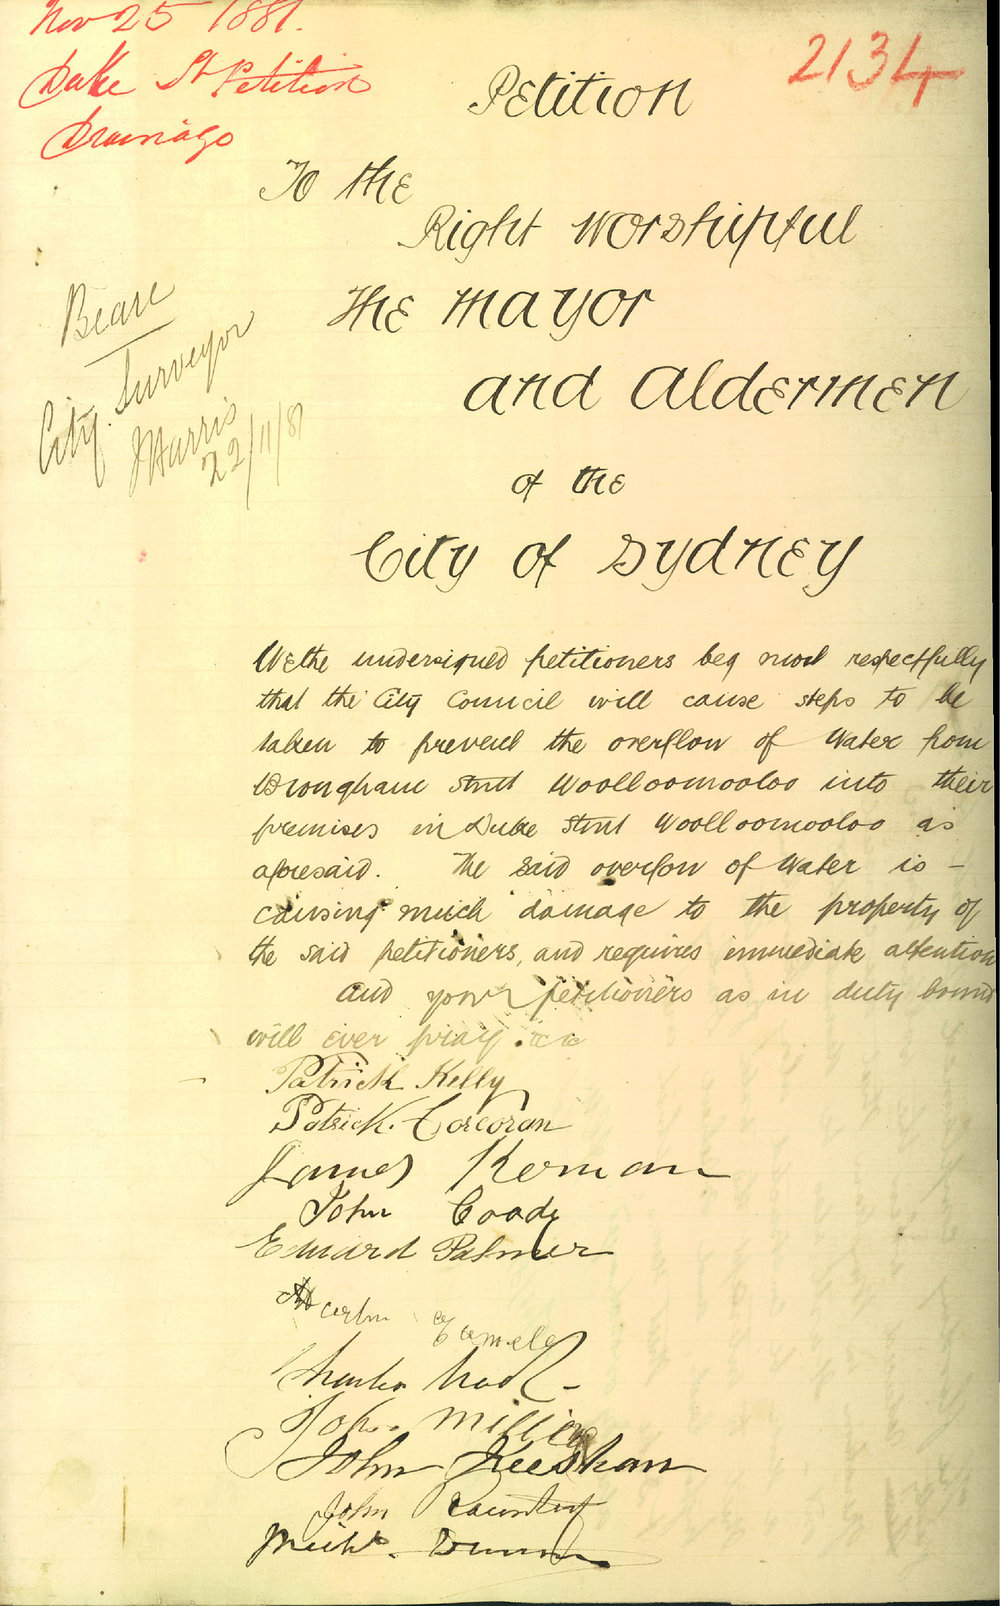 Nov 25 1881.
Duke St Petition
Drainage
2134
Petition
To the
Right Worshipful
The Mayor
and Aldermen
of the
City of Sydney
Beare
City Surveyor
Harris
22/11/81
We the undersigned petitioners beg most respectfully
that the City Council will cause steps to be
taken to prevent the overflow of Water from
Broughham Street Woolloomooloo into their
premises in Duke Street Woolloomooloo as
aforesaid. The said overflow of Water is –
causing much damage to the property of
the said petitioners, and requires immediate attention
and your petitioners as in duty bound
will ever pray &c &c
Patrick Kelly
Patrick. Corcoran
James
John Coady
Edward Palmer
Charles
John
John Keeshan
John
Michl. Dunn